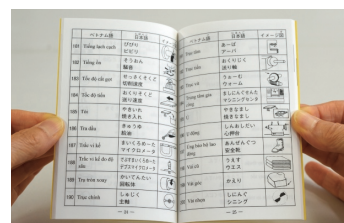 ベトナム語 日本語 イメージ図
181 Tiếng lạch cạch びびり ビビリ
182 Tiếng ồn そうおん 騒音
183 Tốc độ cắt gọt せっさくそくど 切削速度
184 Tốc độ tiến おくりそくど 送り速度
185 Tôi やきいれ 焼き入れ
186 Tra dầu きゅうゆ 給油
187 Trắc vi kế まいくろめーた マイクロメータ
188 Trắc vi kế đo độ sâu でぷすまいくろめーた デプスマイクロメータ
189 Trụ tròn xoay かいてんたい 回転体
190 Trục chính しゅじく 主軸
— 24 —
ベトナム語 日本語 イメージ図
あーば アーバ
おくりじく 送り軸
Trục vít うぉーむ ウォーム
Trung tâm gia công ましにんぐせんた マシニングセンタ
Ủ やきなまし 焼きなまし
Ụ động しんおしだい 心押台
あんぜんぐつ 安全靴
うえす ウエス
かえり
Vòi phun しにんぐ シニング
— 25 —